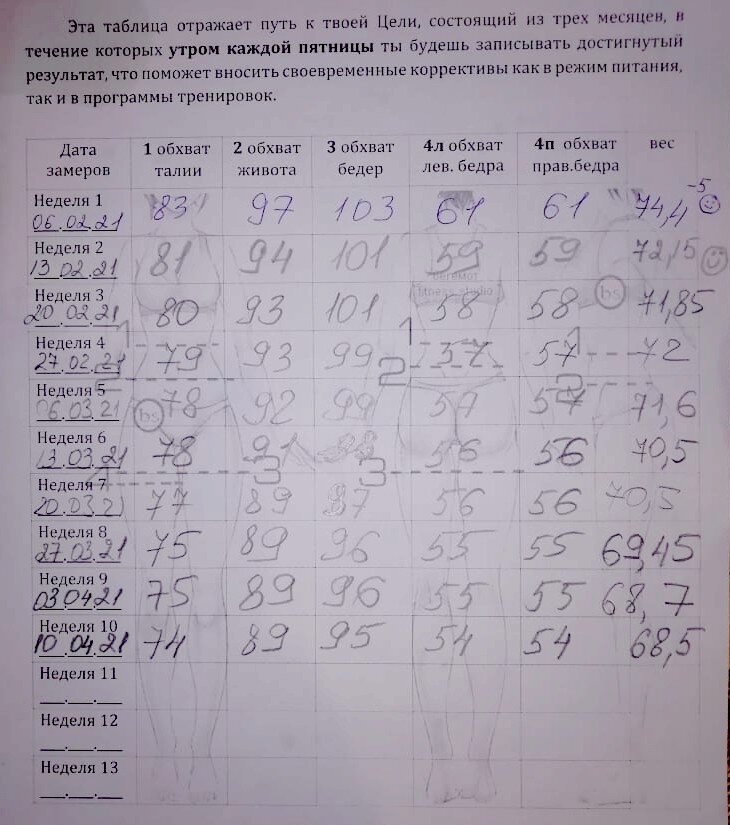 Эта таблица отражает путь к твоей Цели, состоящий из трех месяцев, в
течение которых утром каждой пятницы ты будешь записывать достигнутый
результат, что поможет вносить своевременные коррективы как в режим питания,
так и в программы тренировок.
Дата замеров 1 обхват талии 2 обхват живота 3 обхват бедер 4л обхват лев. бедра 4п обхват прав.бедра вес
-5
Неделя 1 06.02.21 83 97 103 61 61 74,4
Неделя 2 13.02.21 81 94 101 59 59 72,15
Неделя 3 20.02.21 80 93 101 58 58 71,85
Неделя 4 27.02.21 79 93 99 57 57 72
Неделя 5 06.03.21 78 92 99 57 57 71,6
Неделя 6 13.03.21 78 91 98 56 56 70,5
Неделя 7 20.03.21 77 89 97 56 56 70,5
Неделя 8 27.03.21 75 89 96 55 55 69,45
Неделя 9 03.04.21 75 89 96 55 55 68,7
Неделя 10 10.04.21 74 89 95 54 54 68,5
Неделя 11
Неделя 12
Неделя 13
bs
bs
fitness studio
1
1
1
2
2
3
3